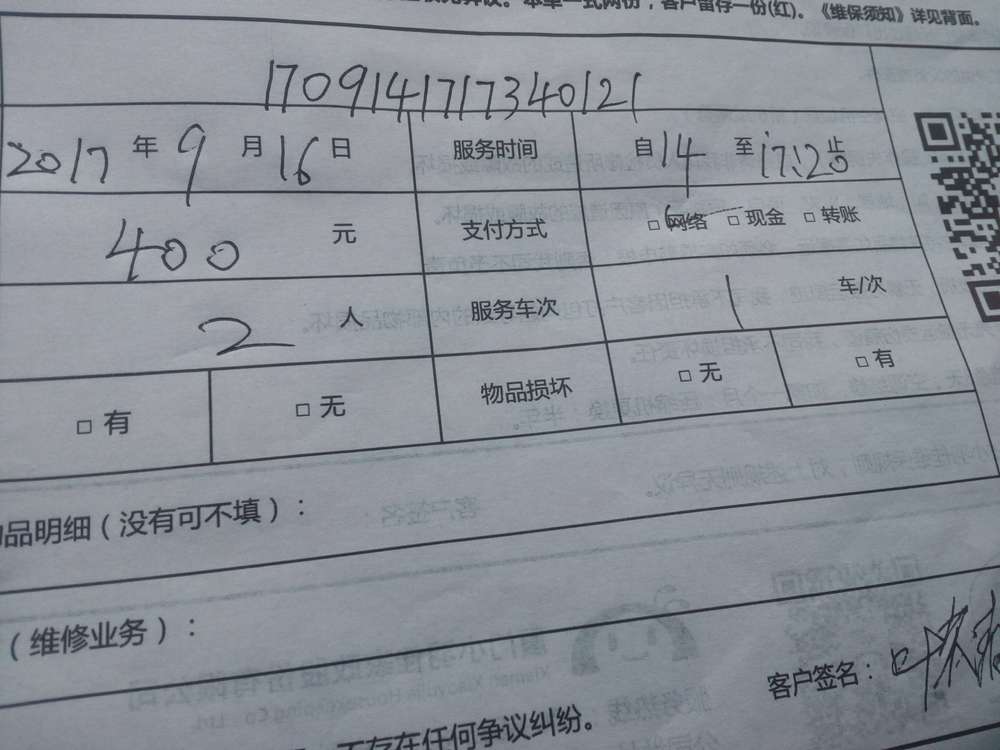 本单一式两份，客户留存一份(红)。《维保须知》详见背面。
170914171734０121
2017 年 9 月 16 日 服务时间 自 14 至 17:20 止
400 元 支付方式 □ 网络 □ 现金 □ 转账
2 人 服务车次 1 车/次
□ 有 □ 无 物品损坏 □ 无 □ 有
品明细（没有可不填）：
（维修业务）：
客户签名：叶
不存在任何争议纠纷。